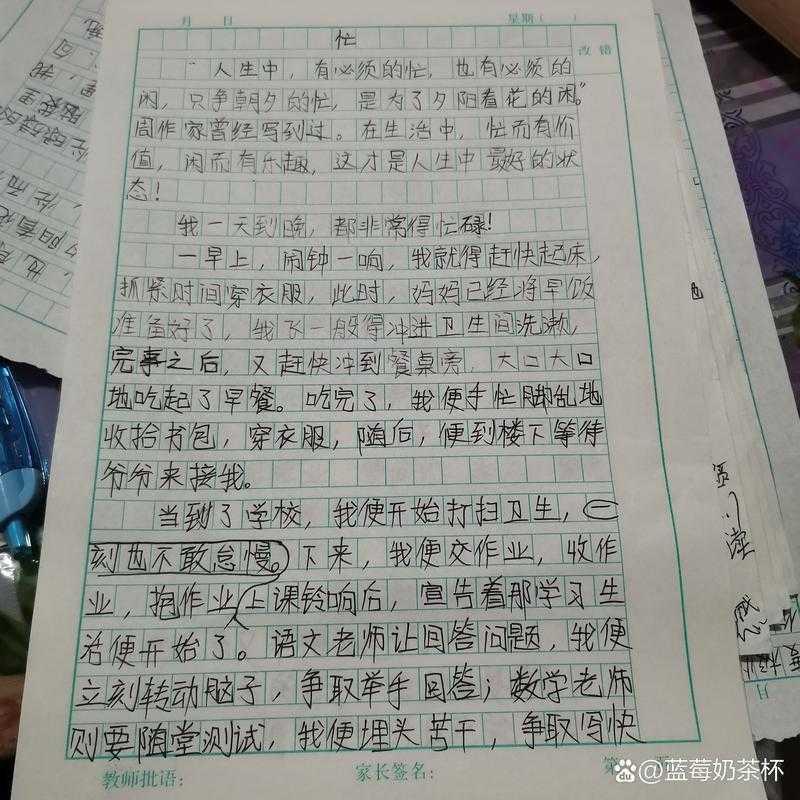 月 日 星期（ ）
改错
忙
“人生中，有必须的忙，也有必须的
闲，只争朝夕的忙，是为了夕阳看花的闲。”
周作家曾经写到过。在生活中，忙而有价
值，闲而有乐趣，这才是人生中最好的状
态！
我一天到晚，都非常得忙碌！
一早上，闹钟一响，我就得赶快起床，
抓紧时间穿衣服，此时，妈妈已经将早饭
准备好了，我飞一般得冲进卫生间洗漱，
完事之后，又赶快冲到餐桌旁，大口大口
地吃起了早餐。吃完了，我便手忙脚乱地
收拾书包，穿衣服，随后，便到楼下等待
爷爷来接我。
当到了学校，我便开始打扫卫生，一
刻也不敢怠慢。下来，我便交作业，收作
业，抱作业，上课铃响后，宣告着那学习生
活便开始了。语文老师让回答问题，我便
立刻转动脑子，争取举手回答；数学老师
则要随堂测试，我便埋头苦干，争取写快
教师批语： 家长签名： 第 页
@蓝莓奶茶杯